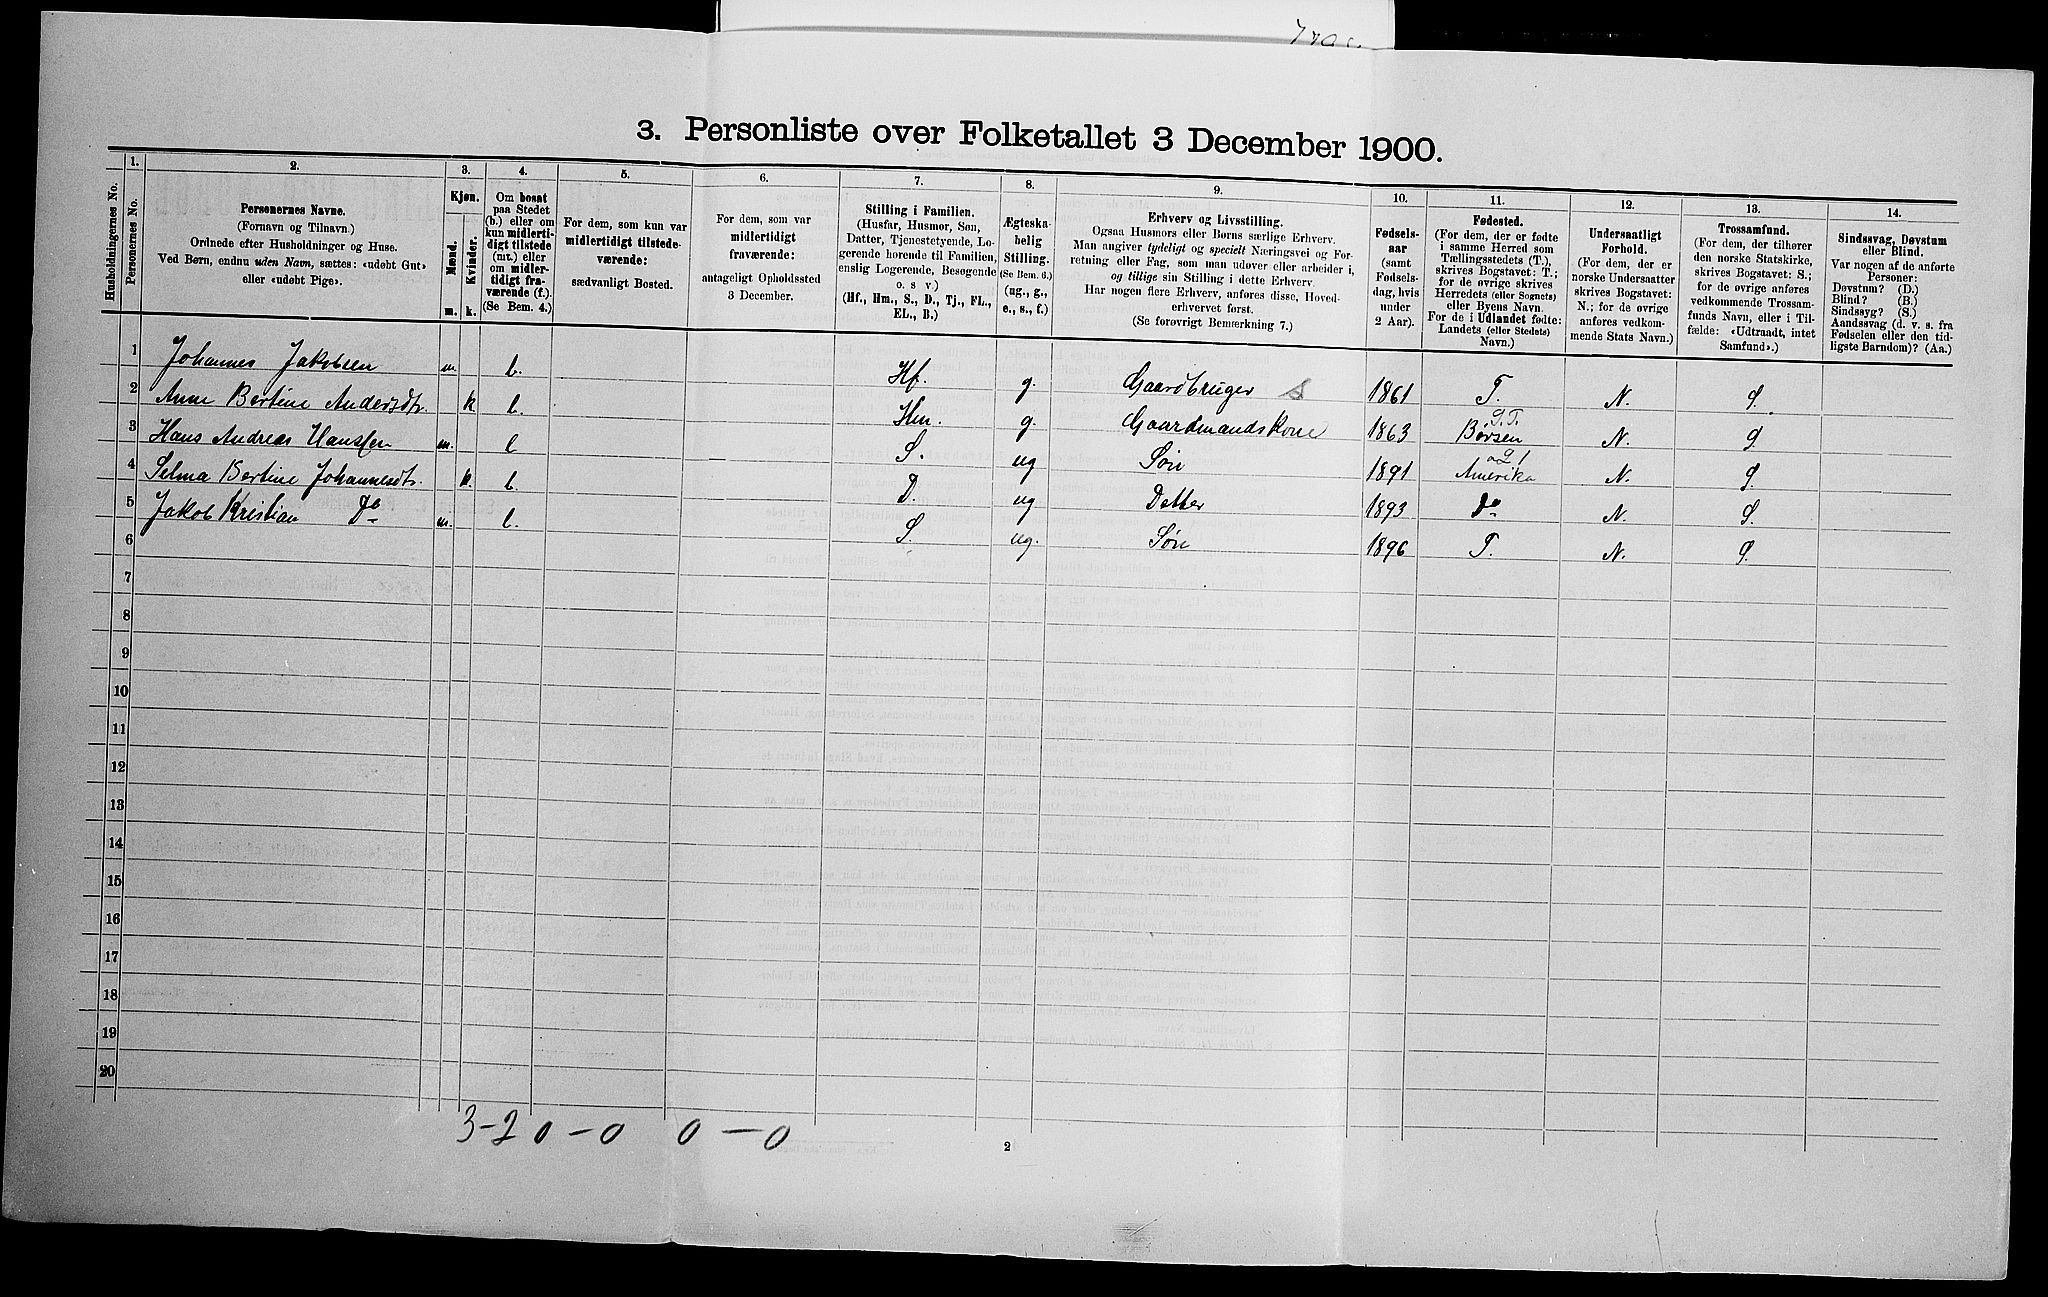 3. Personliste over Folketallet 3 December 1900.
Husholdningernes No.
1.
Personernes No.
2.
Personernes Navne.
(Fornavn og Tilnavn.)
Ordnede efter Husholdninger og Huse.
Ved Børn, endnu uden Navn, sættes: «udøbt Gut»
eller «udøbt Pige».
3.
Kjøn.
Mænd.
Kvinder.
m.
k.
4.
Om bosat
paa Stedet
(b.) eller om
kun midlerti-
digt tilstede
(mt.) eller
om midler-
tidigt fra-
værende (f.).
(Se Bem. 4.)
5.
For dem, som kun var
midlertidigt tilstede-
værende:
sædvanligt Bosted.
6.
For dem, som var
midlertidigt
fraværende:
antageligt Opholdssted
3 December.
7.
Stilling i Familien.
(Husfar, Husmor, Søn,
Datter, Tjenestetyende, Lo-
gerende hørende til Familien,
enslig Logerende, Besøgende
o. s v.)
(Hf., Hm., S., D., Tj., FL.,
EL., B.)
8.
Ægteska-
belig
Stilling.
(Se Bem. 6.)
(ug., g.,
e., s., f.)
9.
Erhverv og Livsstilling.
Ogsaa Husmors eller Børns særlige Erhverv.
Man angiver tydeligt og specielt Næringsvei og For-
retning eller Fag, som man udøver eller arbeider i,
og tillige sin Stilling i dette Erhverv.
Har nogen flere Erhverv, anføres disse, Hoved-
erhvervet først.
(Se forøvrigt Bemærkning 7.)
10.
Fødsels-
aar
(samt
Fødsels-
dag, hvis
under
2 Aar).
11.
Fødested.
(For dem, der er fødte
i samme Herred som
Tællingsstedets (T.),
skrives Bogstavet: T.;
for de øvrige skrives
Herredets (eller Sognets)
eller Byens Navn.
For de i Udlandet fødte:
Landets (eller Stedets)
Navn.)
12.
Undersaatligt
Forhold.
(For dem, der er
norske Undersaatter
skrives Bogstavet:
N.; for de øvrige
anføres vedkom-
mende Stats Navn.)
13.
Trossamfund.
(For dem, der tilhører
den norske Statskirke,
skrives Bogstavet: S.;
for de øvrige anføres
vedkommende Trossam-
funds Navn, eller i Til-
fælde: «Udtraadt, intet
Samfund».)
14.
Sindssvag, Døvstum
eller Blind.
Var nogen af de anførte
Personer:
Døvstum? (D.)
Blind? (B.)
Sindssyg? (S.)
Aandssvag (d. v. s. fra
Fødselen eller den tid-
ligste Barndom)? (Aa.)
1 Johannes Jakobsen m. b. Hf. g. Gaardbruger S 1861 T. N. S.
2 Anne Bertine Andersdtr. k b. Hm. g. Gaardmandskone 1863 Børsen S.T. N. S.
3 Hans Andreas Hanssen m. b S. ug Søn 1891 Amerika N. S.
4 Selma Bertine Johannesdtr. k. b. D. ug Datter 1893 Do N. S.
5 Jakob Kristian Do m. b. S. ug. Søn 1896 T. N. S.
6
7
8
9
10
11
12
13
14
15
16
17
18
19
20
3-2 0-0 0-0
2